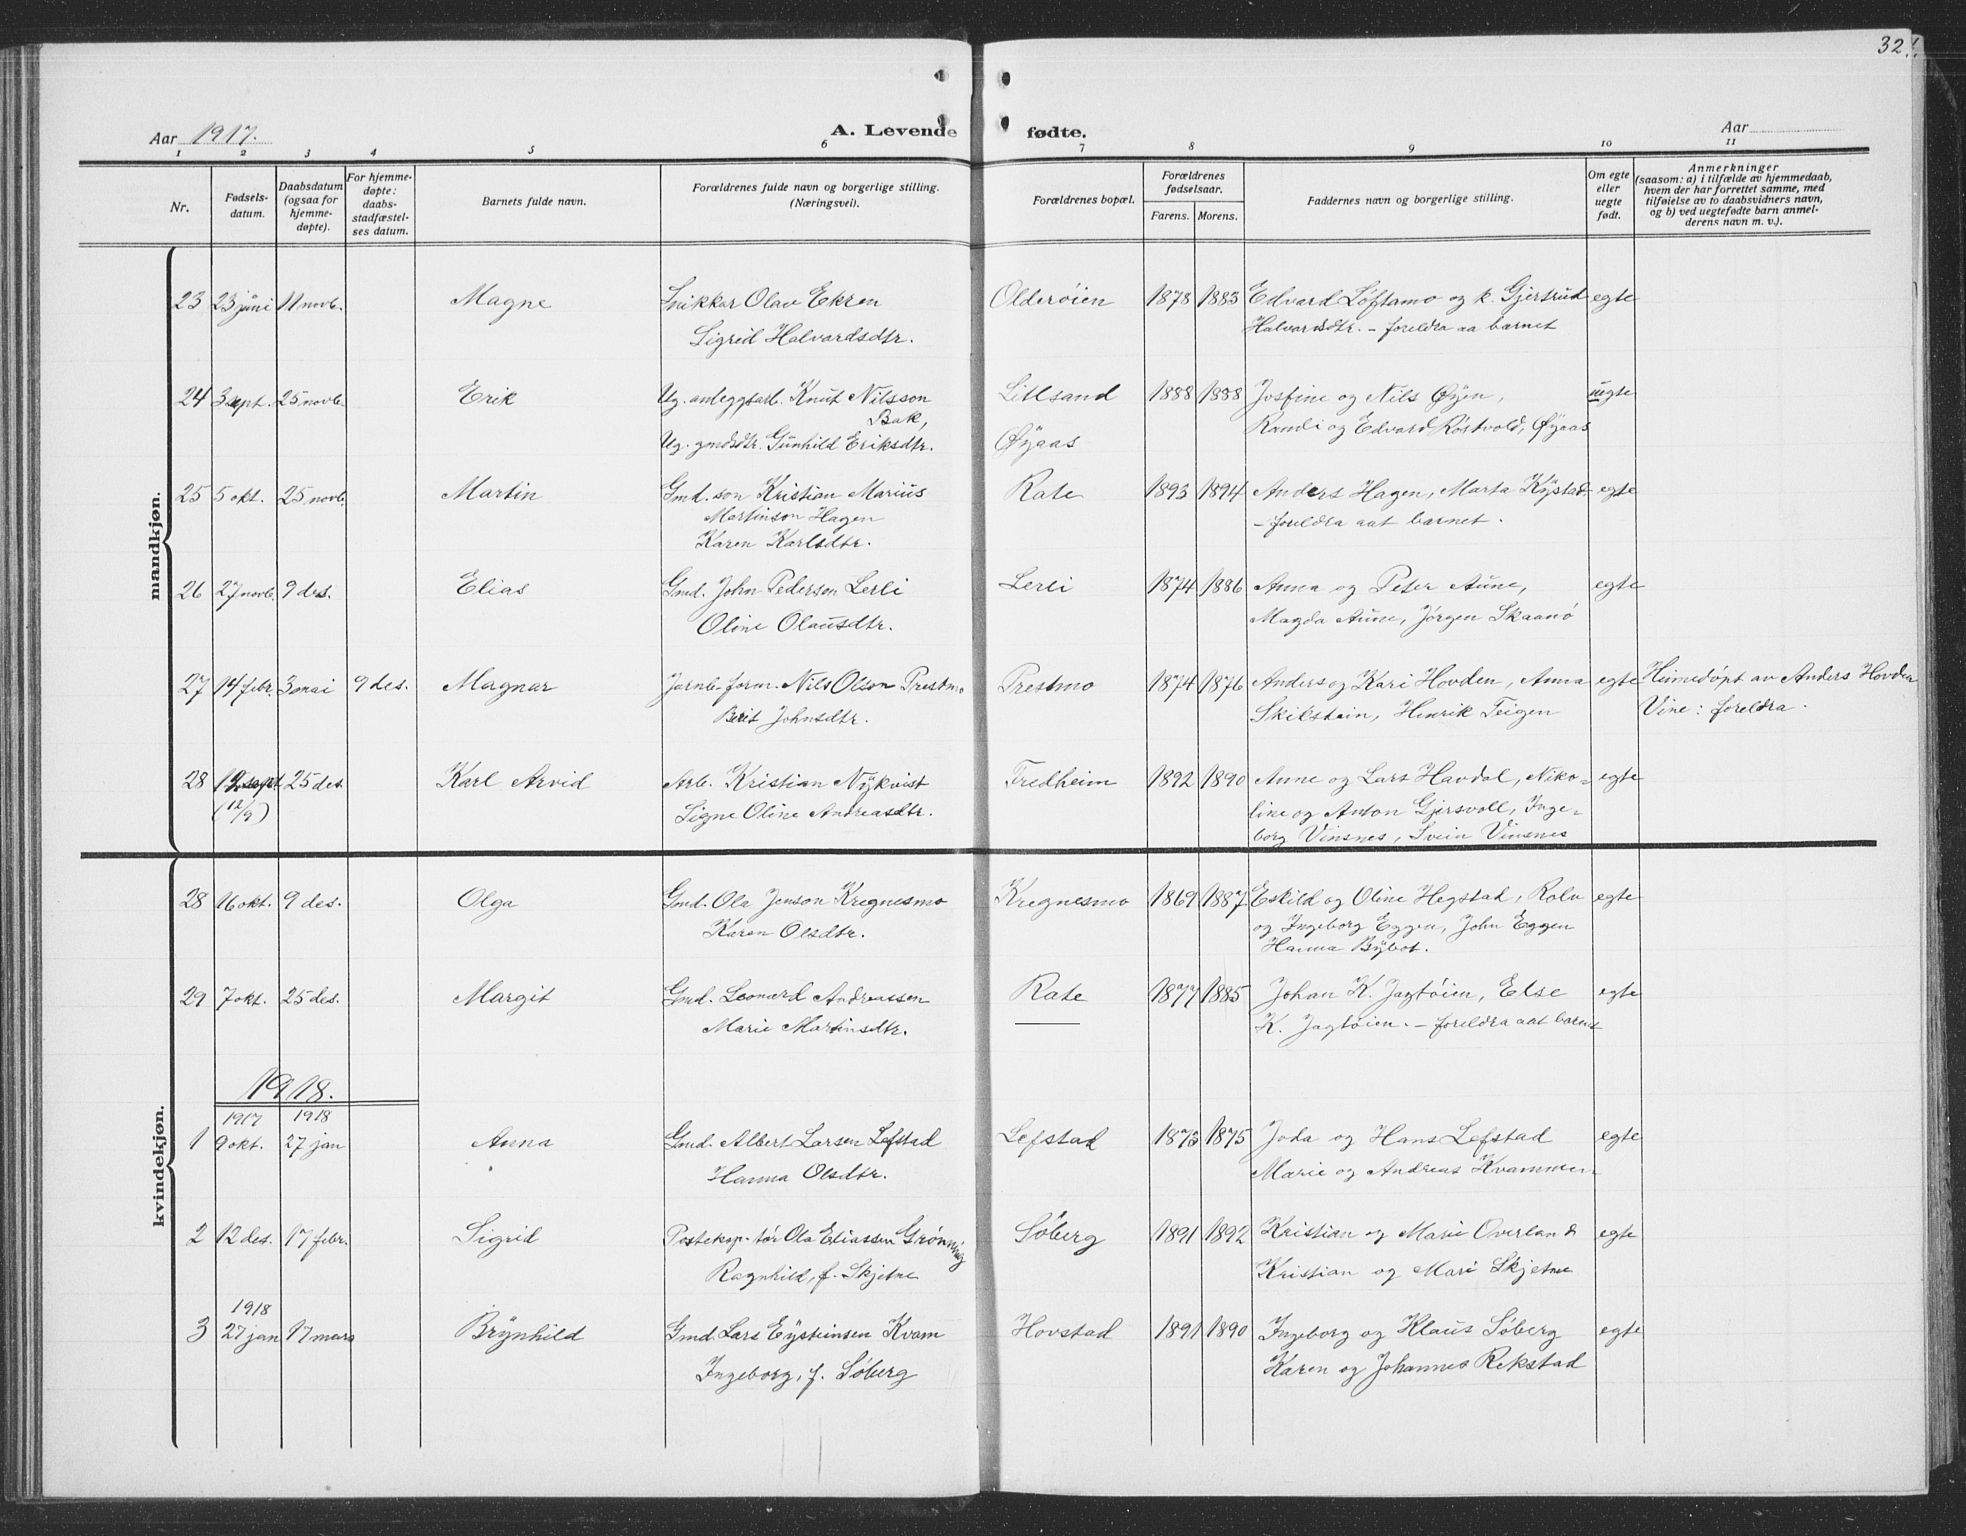 32.
Aar 1917.
A. Levende fødte.
Aar
1 2 3 4 5 6 7 8 9 10 11
Nr.
Fødsels-
datum.
Daabsdatum
(ogsaa for
hjemme-
døpte).
For hjemme-
døpte:
daabs-
stadfæstel-
ses datum.
Barnets fulde navn.
Forældrenes fulde navn og borgerlige stilling.
(Næringsvei).
Forældrenes bopæl.
Forældrenes
fødselsaar.
Farens. Morens.
Faddernes navn og borgerlige stilling.
Om egte
eller
uegte
født.
Anmerkninger
(saasom: a) i tilfælde av hjemmedaab,
hvem der har forrettet samme, med
tilføielse av to daabsvidners navn,
og b) ved uegtefødte barn anmel-
derens navn m. v.).
mandkjøn.
23 23 juni 11 novb. Magne Snikkar Olav Ekren Olderöien 1878 1883 Edvard Løftamo og k. Gjertrud egte
Sigrid Halvardsdtr. Halvardsdtr. – foreldra aa barnet
24 3 sept. 25 novb. Erik Ug. anleggsarb. Knut Nilsson Litlsand 1888 1888 Josfine og Nils Øyen, uegte
Bak,
Ug. gmdsdtr. Gunhild Eriksdtr. Øyaas Randi og Edvard Röstvold, Øyaas
25 5 okt. 25 novb. Martin Gmd. son Kristian Marius Rate 1893 1894 Anders Hagen, Marta Kystad egte
Martinson Hagen – foreldra aat barnet.
Karen Karlsdtr.
26 27 novb. 9 des. Elias Gmd. John Pederson Lerli Lerli 1874 1886 Anna og Peter Aune, egte
Oline Olausdtr. Magda Aune, Jørgen Skaanö
27 14 febr. 3 mai 9 des. Magnar Jarnb. form. Nils Olson Prestmo Prestmo 1874 1876 Anders og Kari Hovden, Anna egte Heimedøpt av Anders Hovden
Berit Johnsdtr. Skikstein, Henrik Teigen Vine: foreldra.
28 12 sept. 25 des. Karl Arvid Arb. Kristian Nykvist Fredheim 1892 1890 Anne og Lars Havdal, Niko= egte
(12/9) Signe Oline Andreasdtr. line og Anton Gjersvoll, Inge-
borg Vinsnes, Svein Vinsnes
kvindekjøn.
28 16 okt. 9 des. Olga Gmd. Ola Jenson Kregnesmo Kregnesmo 1869 1887 Eskild og Oline Hegstad, Rolv egte
Karen Olsdtr. og Ingeborg Eggen, John Eggen
Hanna Bybot.
29 7 okt. 25 des. Margit Gmd. Leonard Andreassen Rate 1877 1885 Johan K. Jagtöien, Else egte
Marie Martinsdtr. K. Jagtöien. – foreldra aat barnet
1918.
1917 1918
1 9 okt. 27 jan Anna Gmd. Albert Larsen Lefstad Lefstad 1873 1875 Joda og Hans Lefstad egte
Hanna Olsdtr. Marie og Andreas Kvammen
2 12 des. 17 febr. Sigrid Postekspe-tør Ola Eliassen Grönning Söberg 1891 1892 Kristian og Marie Overland egte
Ragnhild, f. Skjetne Kristian og Mari Skjetne
1918
3 27 jan 17 mars Brynhild Gmd. Lars Eysteinsen Kvam Hovstad 1891 1890 Ingeborg og Klaus Söberg egte
Ingeborg, f. Söberg Karen og Johannes Rekstad